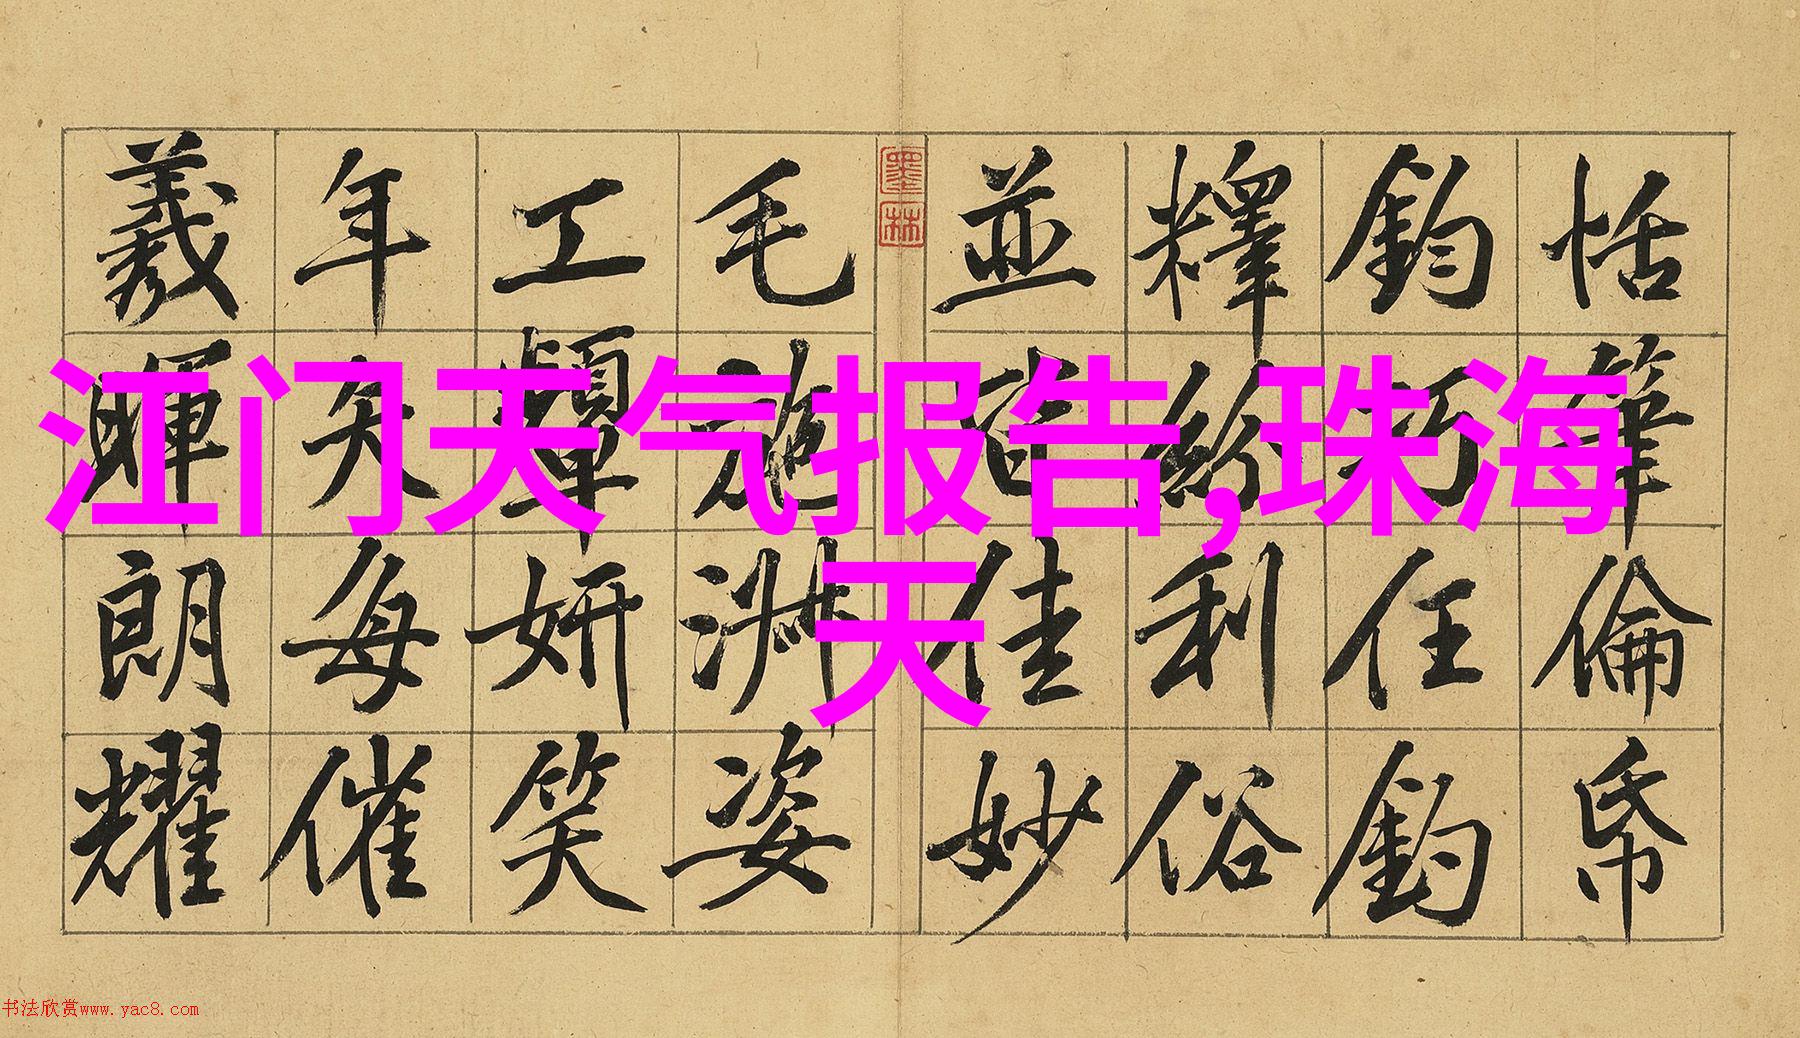 江门天气报告,珠海
天
恬筆倫帋
鈞巧任釣
釋紛利俗
並皆佳妙
毛施淑姿
工顰妍笑
年矢每催
羲暉朗耀
墨林
书法欣赏www.yac8.com